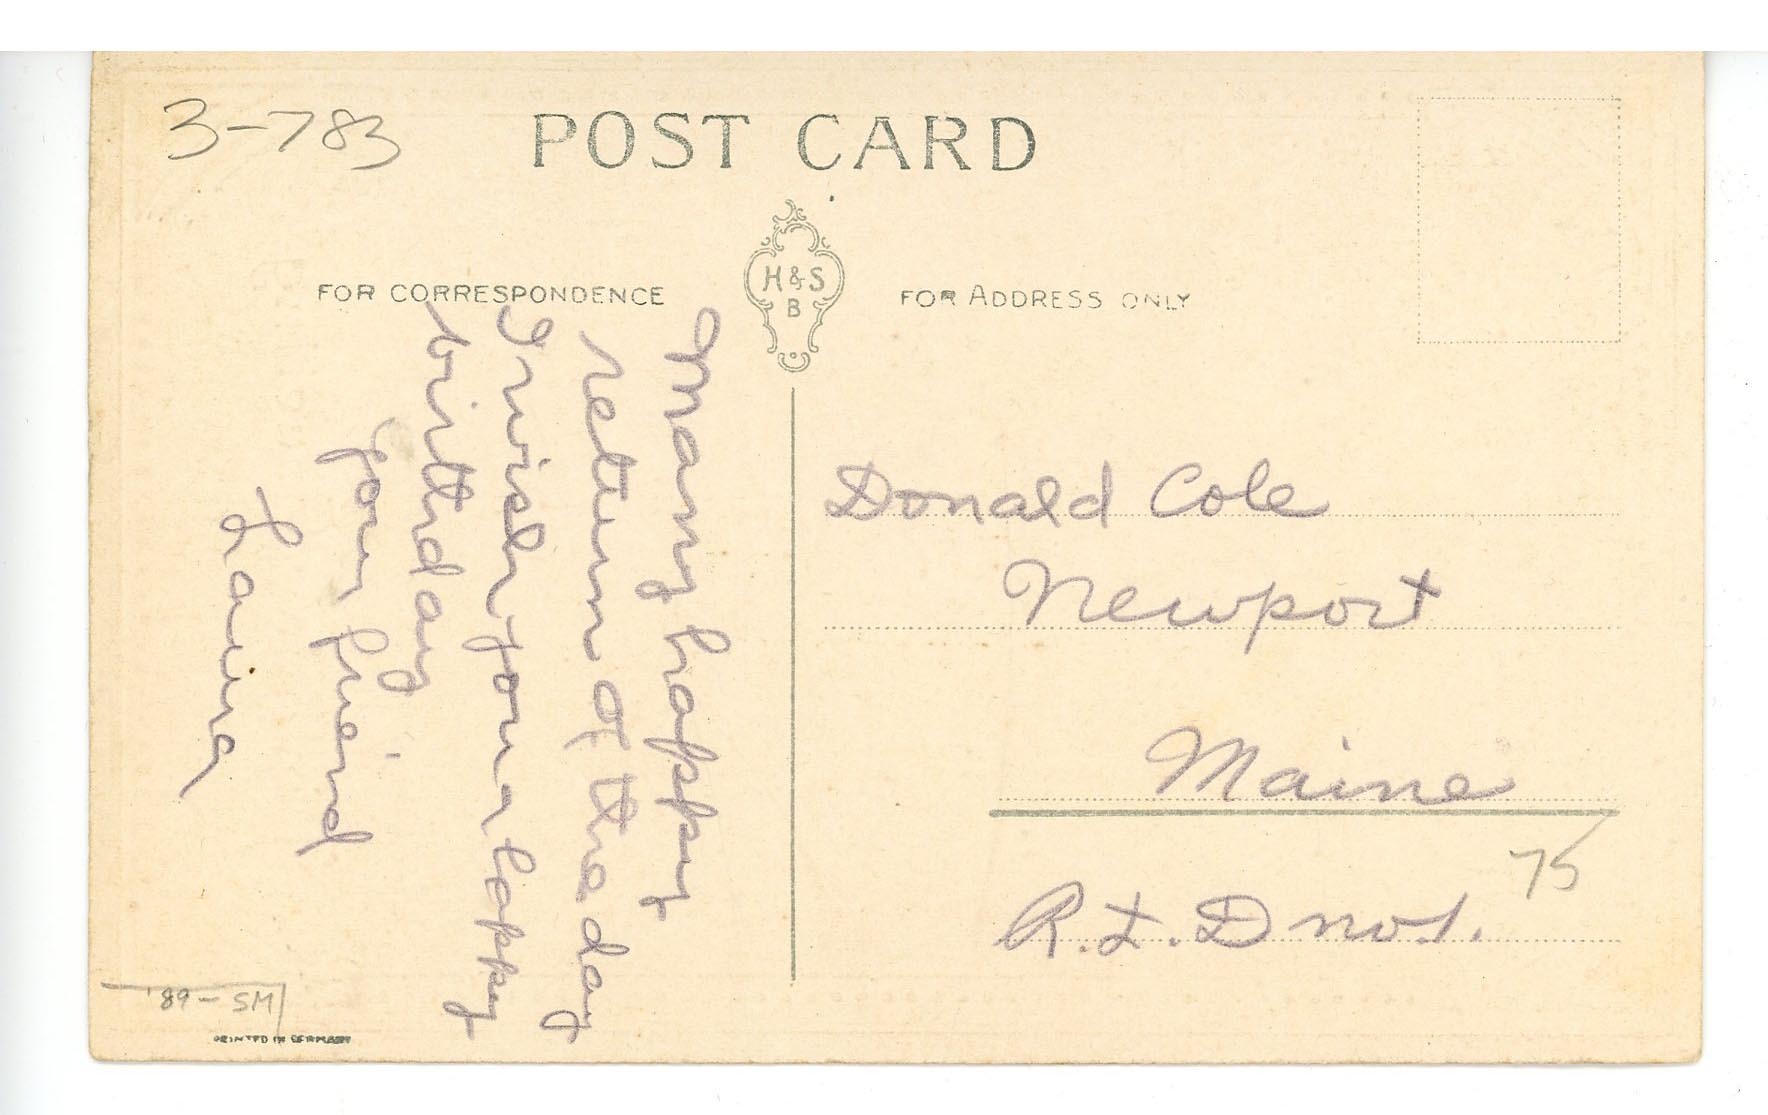 3-783
POST CARD
H&S
B
FOR CORRESPONDENCE
FOR ADDRESS ONLY
Many happy
return of the day
I wish you a happy
birthday
your friend
Laura
Donald Cole
Newport
Maine
75
R.F.D no 1.
'89-SM
PRINTED IN GERMANY